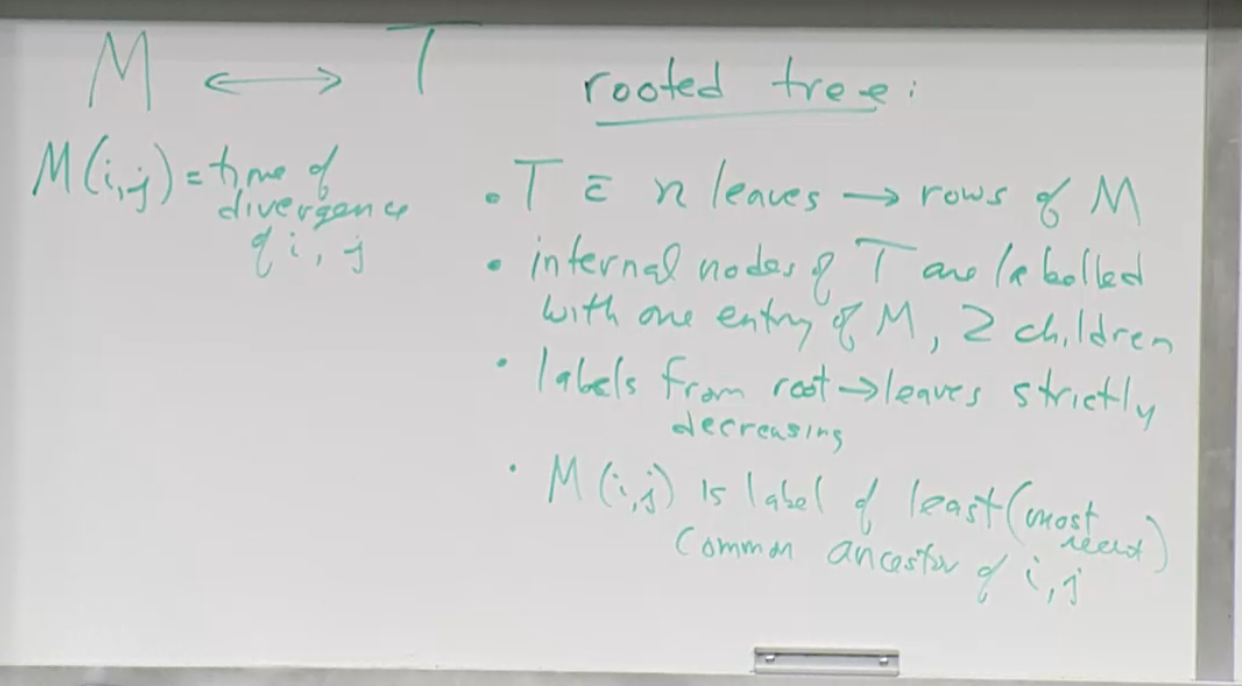 M ↔ T
M(i,j) = time of
divergence
of i, j
rooted tree:
• T c̄ n leaves → rows of M
• internal nodes of T are labelled
with one entry of M, 2 children
• labels from root → leaves strictly
decreasing
• M(i,j) is label of least (most
recent)
common ancestor of i, j